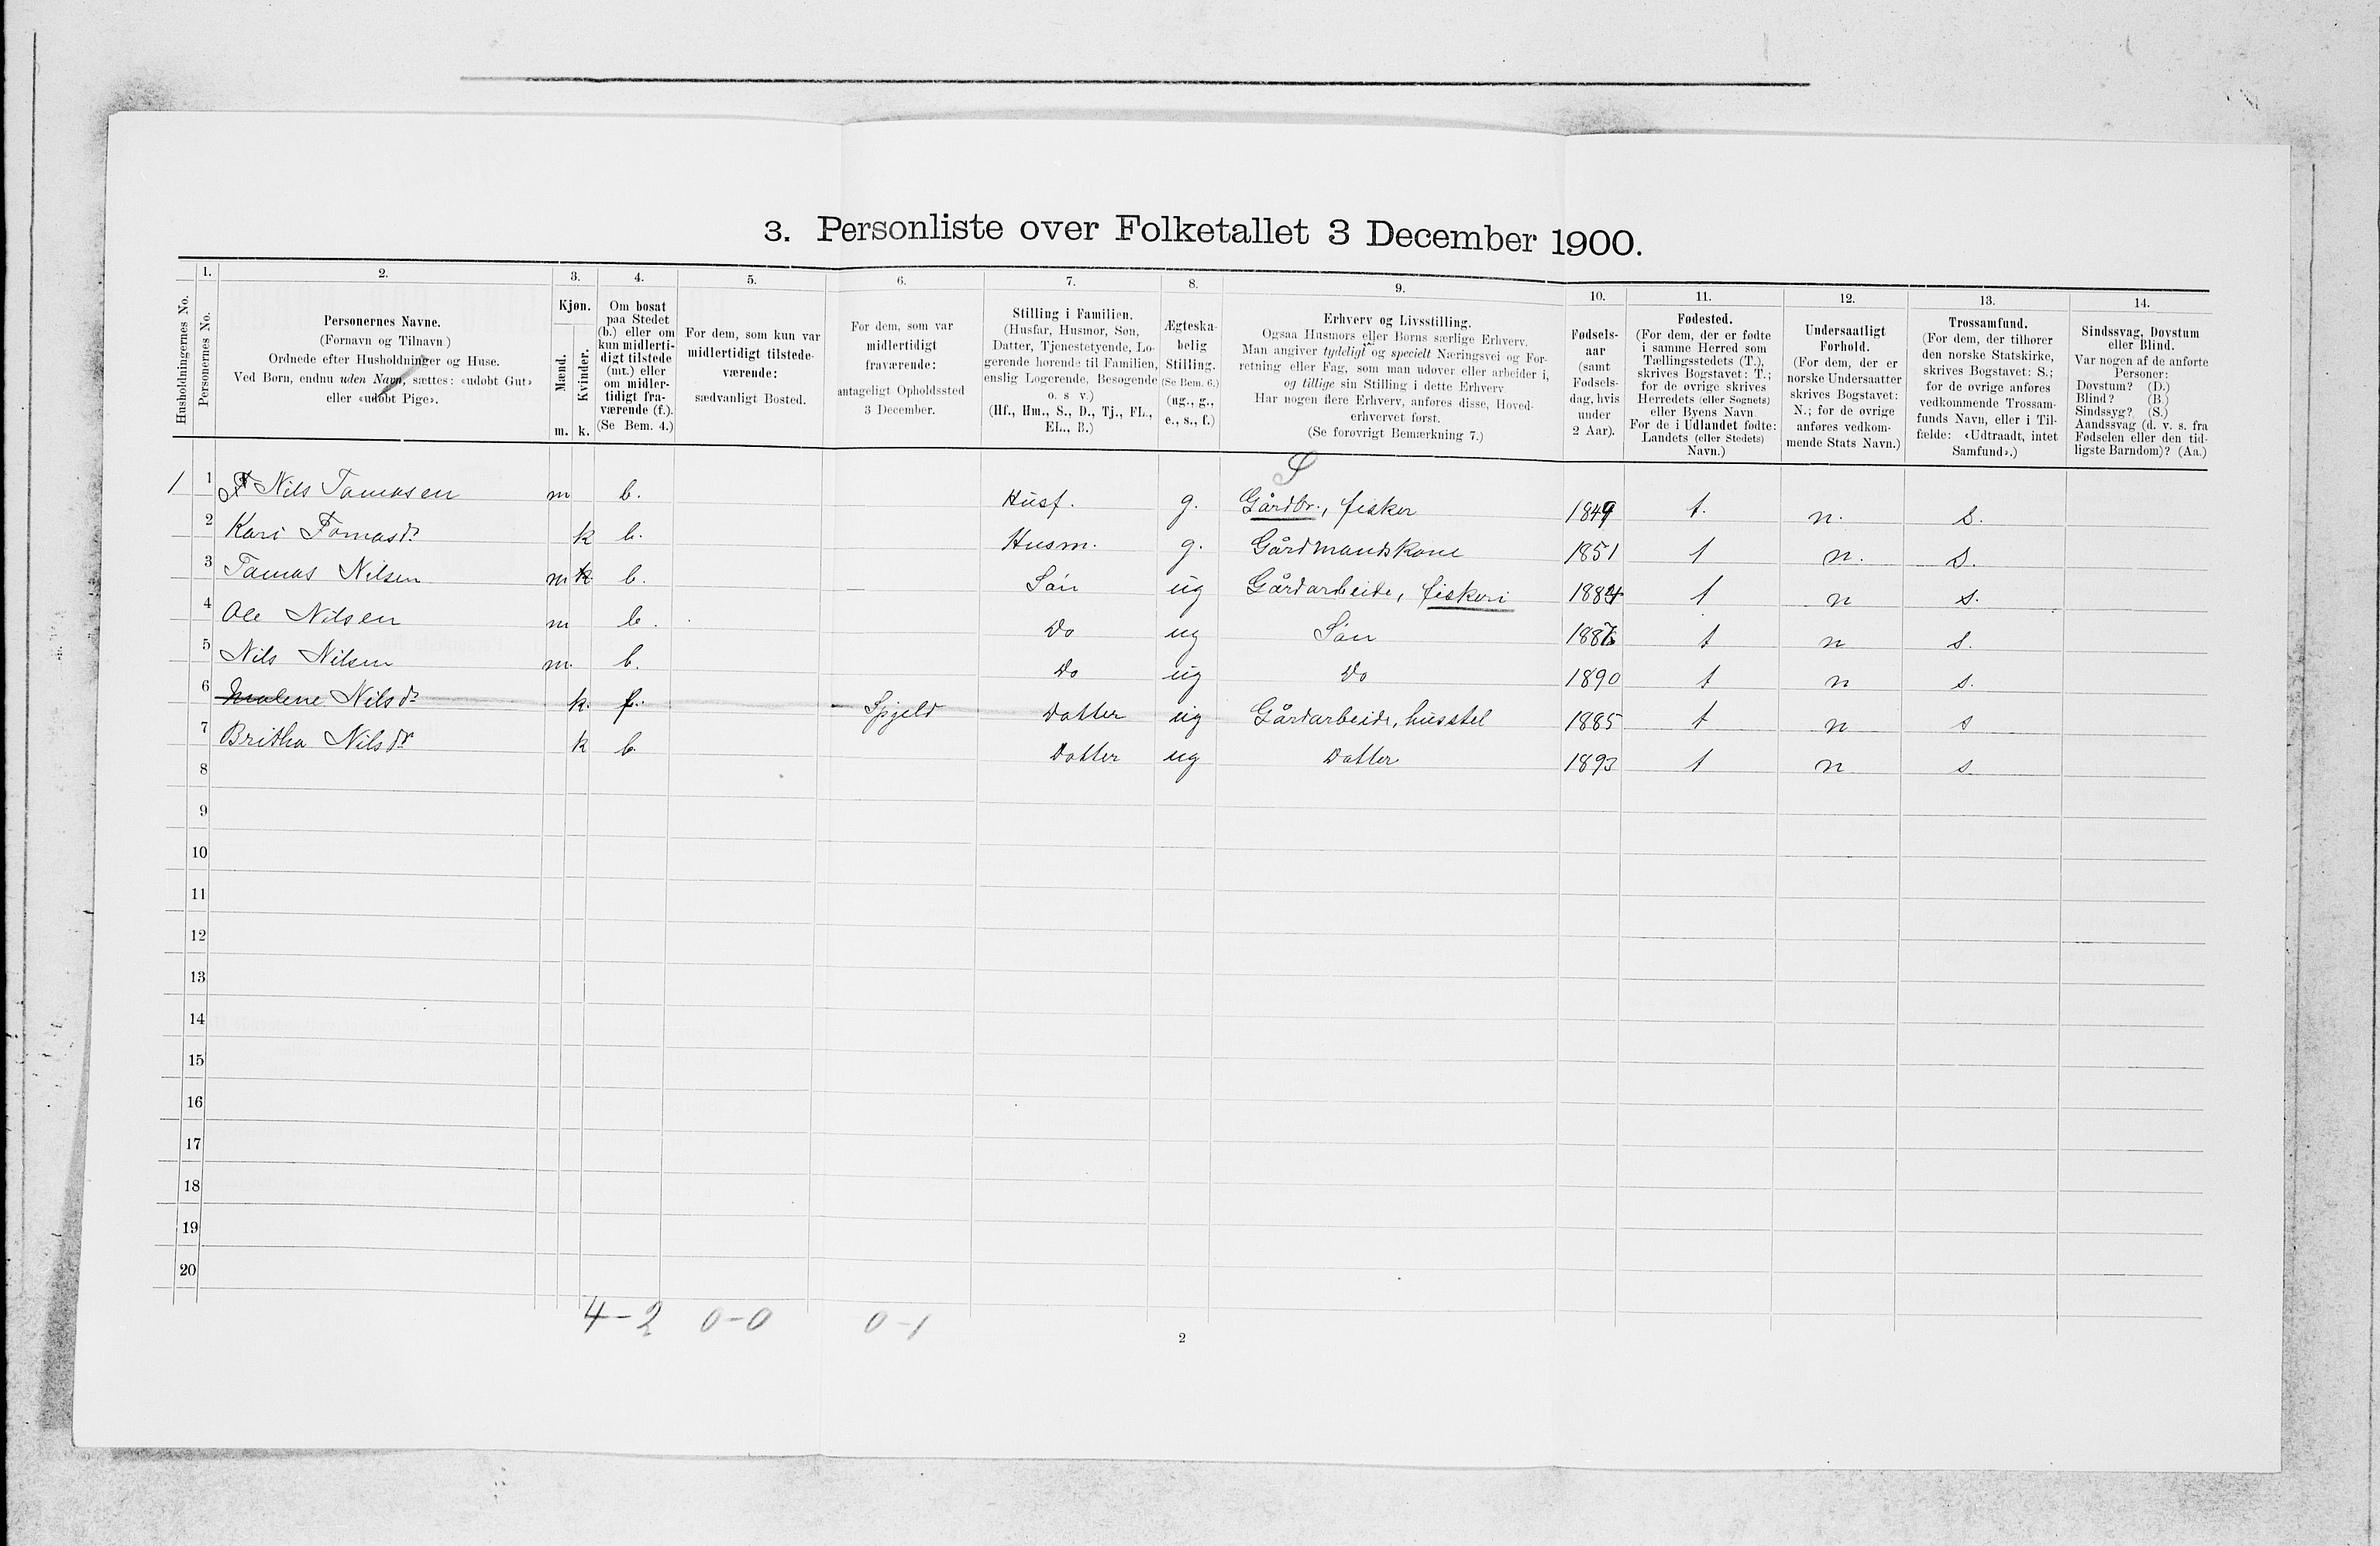 3. Personliste over Folketallet 3 December 1900.
1. 2. 3. 4. 5. 6. 7. 8. 9. 10. 11. 12. 13. 14.
Husholdningernes No.
Personernes No.
Personernes Navne.
(Fornavn og Tilnavn.)
Ordnede efter Husholdninger og Huse.
Ved Børn, endnu uden Navn, sættes: «udøbt Gut»
eller «udøbt Pige».
Kjøn.
Mænd.
Kvinder.
m. k.
Om bosat
paa Stedet
(b.) eller om
kun midlerti-
digt tilstede
(mt.) eller
om midler-
tidigt fra-
værende (f.).
(Se Bem. 4.)
For dem, som kun var
midlertidigt tilstede-
værende:
sædvanligt Bosted.
For dem, som var
midlertidigt
fraværende:
antageligt Opholdssted
3 December.
Stilling i Familien.
(Husfar, Husmor, Søn,
Datter, Tjenestetyende, Lo-
gerende hørende til Familien,
enslig Logerende, Besøgende
o. s v.)
(Hf., Hm., S., D., Tj., FL.,
EL., B.)
Ægteska-
belig
Stilling.
(Se Bem. 6.)
(ug., g.,
e., s., f.)
Erhverv og Livsstilling.
Ogsaa Husmors eller Børns særlige Erhverv.
Man angiver tydeligt og specielt Næringsvei og For-
retning eller Fag, som man udøver eller arbeider i,
og tillige sin Stilling i dette Erhverv.
Har nogen flere Erhverv, anføres disse, Hoved-
erhvervet først.
(Se forøvrigt Bemærkning 7.)
Fødsels-
aar
(samt
Fødsels-
dag, hvis
under
2 Aar).
Fødested.
(For dem, der er fødte
i samme Herred som
Tællingsstedets (T.),
skrives Bogstavet: T.;
for de øvrige skrives
Herredets (eller Sognets)
eller Byens Navn.
For de i Udlandet fødte:
Landets (eller Stedets)
Navn.)
Undersaatligt
Forhold.
(For dem, der er
norske Undersaatter
skrives Bogstavet:
N.; for de øvrige
anføres vedkom-
mende Stats Navn.)
Trossamfund.
(For dem, der tilhører
den norske Statskirke,
skrives Bogstavet: S.;
for de øvrige anføres
vedkommende Trossam-
funds Navn, eller i Til-
fælde: «Udtraadt, intet
Samfund».)
Sindssvag, Døvstum
eller Blind.
Var nogen af de anførte
Personer:
Døvstum? (D.)
Blind? (B.)
Sindssyg? (S.)
Aandssvag (d. v. s. fra
Fødselen eller den tid-
ligste Barndom)? (Aa.)
S
1 1 Nils Tomasen m b. Husf. g. Gårdbr., fisker 1849 t. n. s.
2 Kari Tomasdr k b. Husm. g. Gårdmandskone 1851 t n. s.
3 Tomas Nilsen m k b. Sön ug Gårdarbeide, fiskeri 1884 t n s.
4 Ole Nilsen m b. Do ug Sön 1887 t n s.
5 Nils Nilsen m. b. Do ug Do 1890 t n s.
6 Malene Nilsdr k. f. Spjeld Datter ug Gårdarbeide, husstel 1885 t n s
7 Britha Nilsdr k b. Datter ug Datter 1893 t n s.
8
9
10
11
12
13
14
15
16
17
18
19
20
4-2 0-0 0-1
2